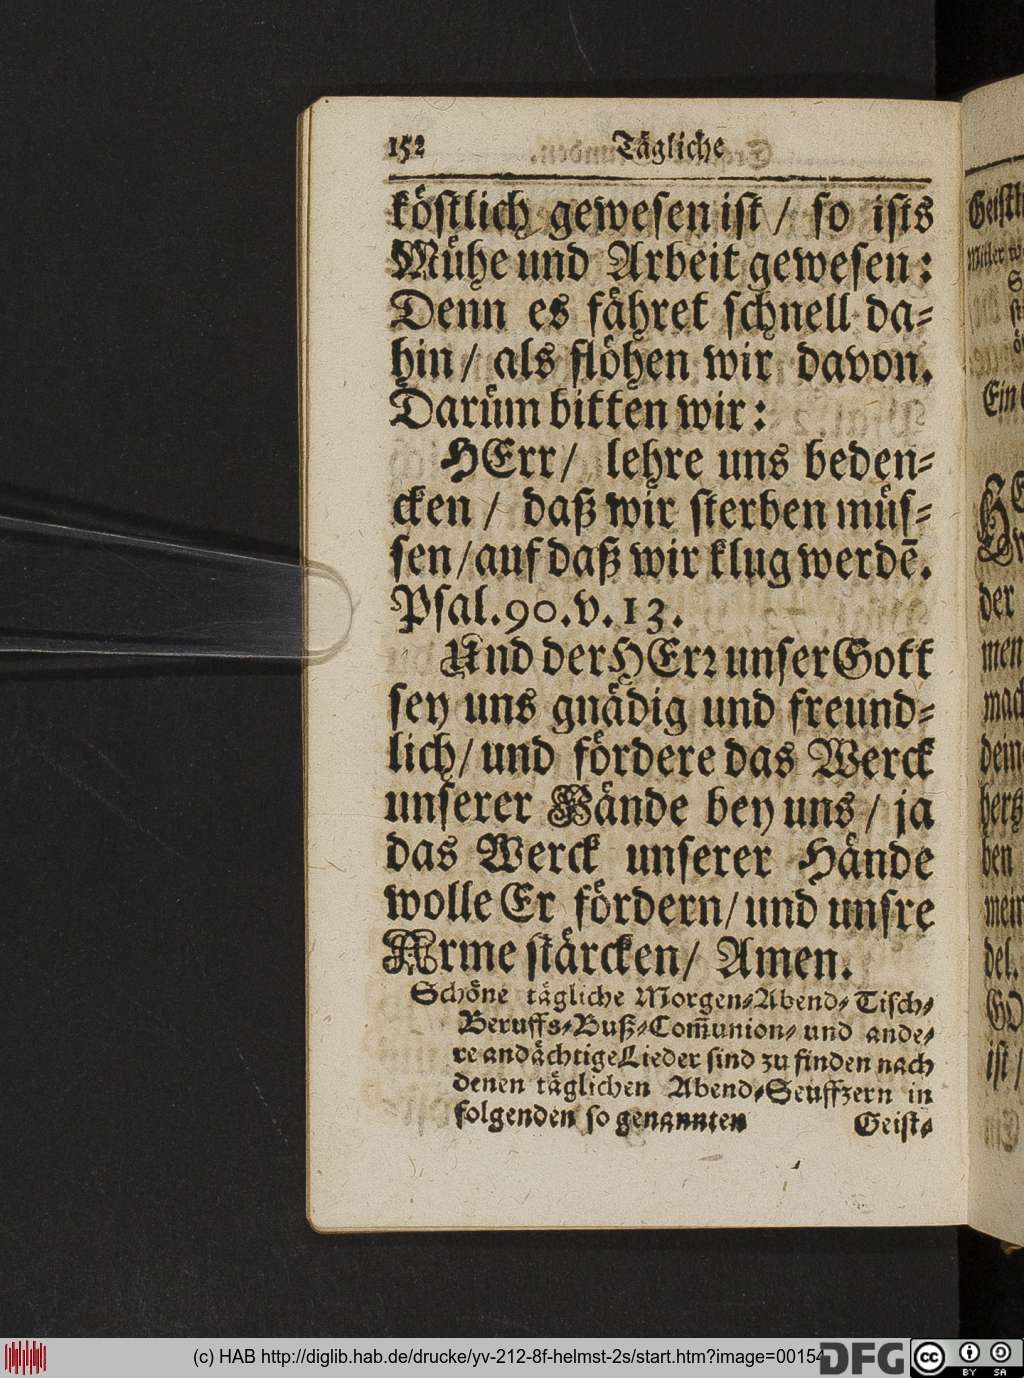 152 Tägliche
köstlich gewesen ist / so ists
Mühe und Arbeit gewesen:
Denn es fähret schnell da-
hin / als flöhen wir davon.
Darüm bitten wir:
HErr / lehre uns beden-
cken / daß wir sterben müs-
sen / auf daß wir klug werdē.
Psal. 90. v. 13.
Und der HErr unser Gott
sey uns gnädig und freund-
lich / und fördere das Werck
unserer Hände bey uns / ja
das Werck unserer Hände
wolle Er fördern / und unsre
Arme stärcken / Amen.
Schöne tägliche Morgen-Abend-Tisch-
Beruffs-Buß-Com̄union- und ande-
re andächtige Lieder sind zu finden nach
denen täglichen Abend-Seuffzern in
folgenden so genannten Geist-
Ein
der
men
mach
dein
hertz
ben
mein
del.
GO
ist /
(c) HAB http://diglib.hab.de/drucke/yv-212-8f-helmst-2s/start.htm?image=00154
DFG
cc BY SA